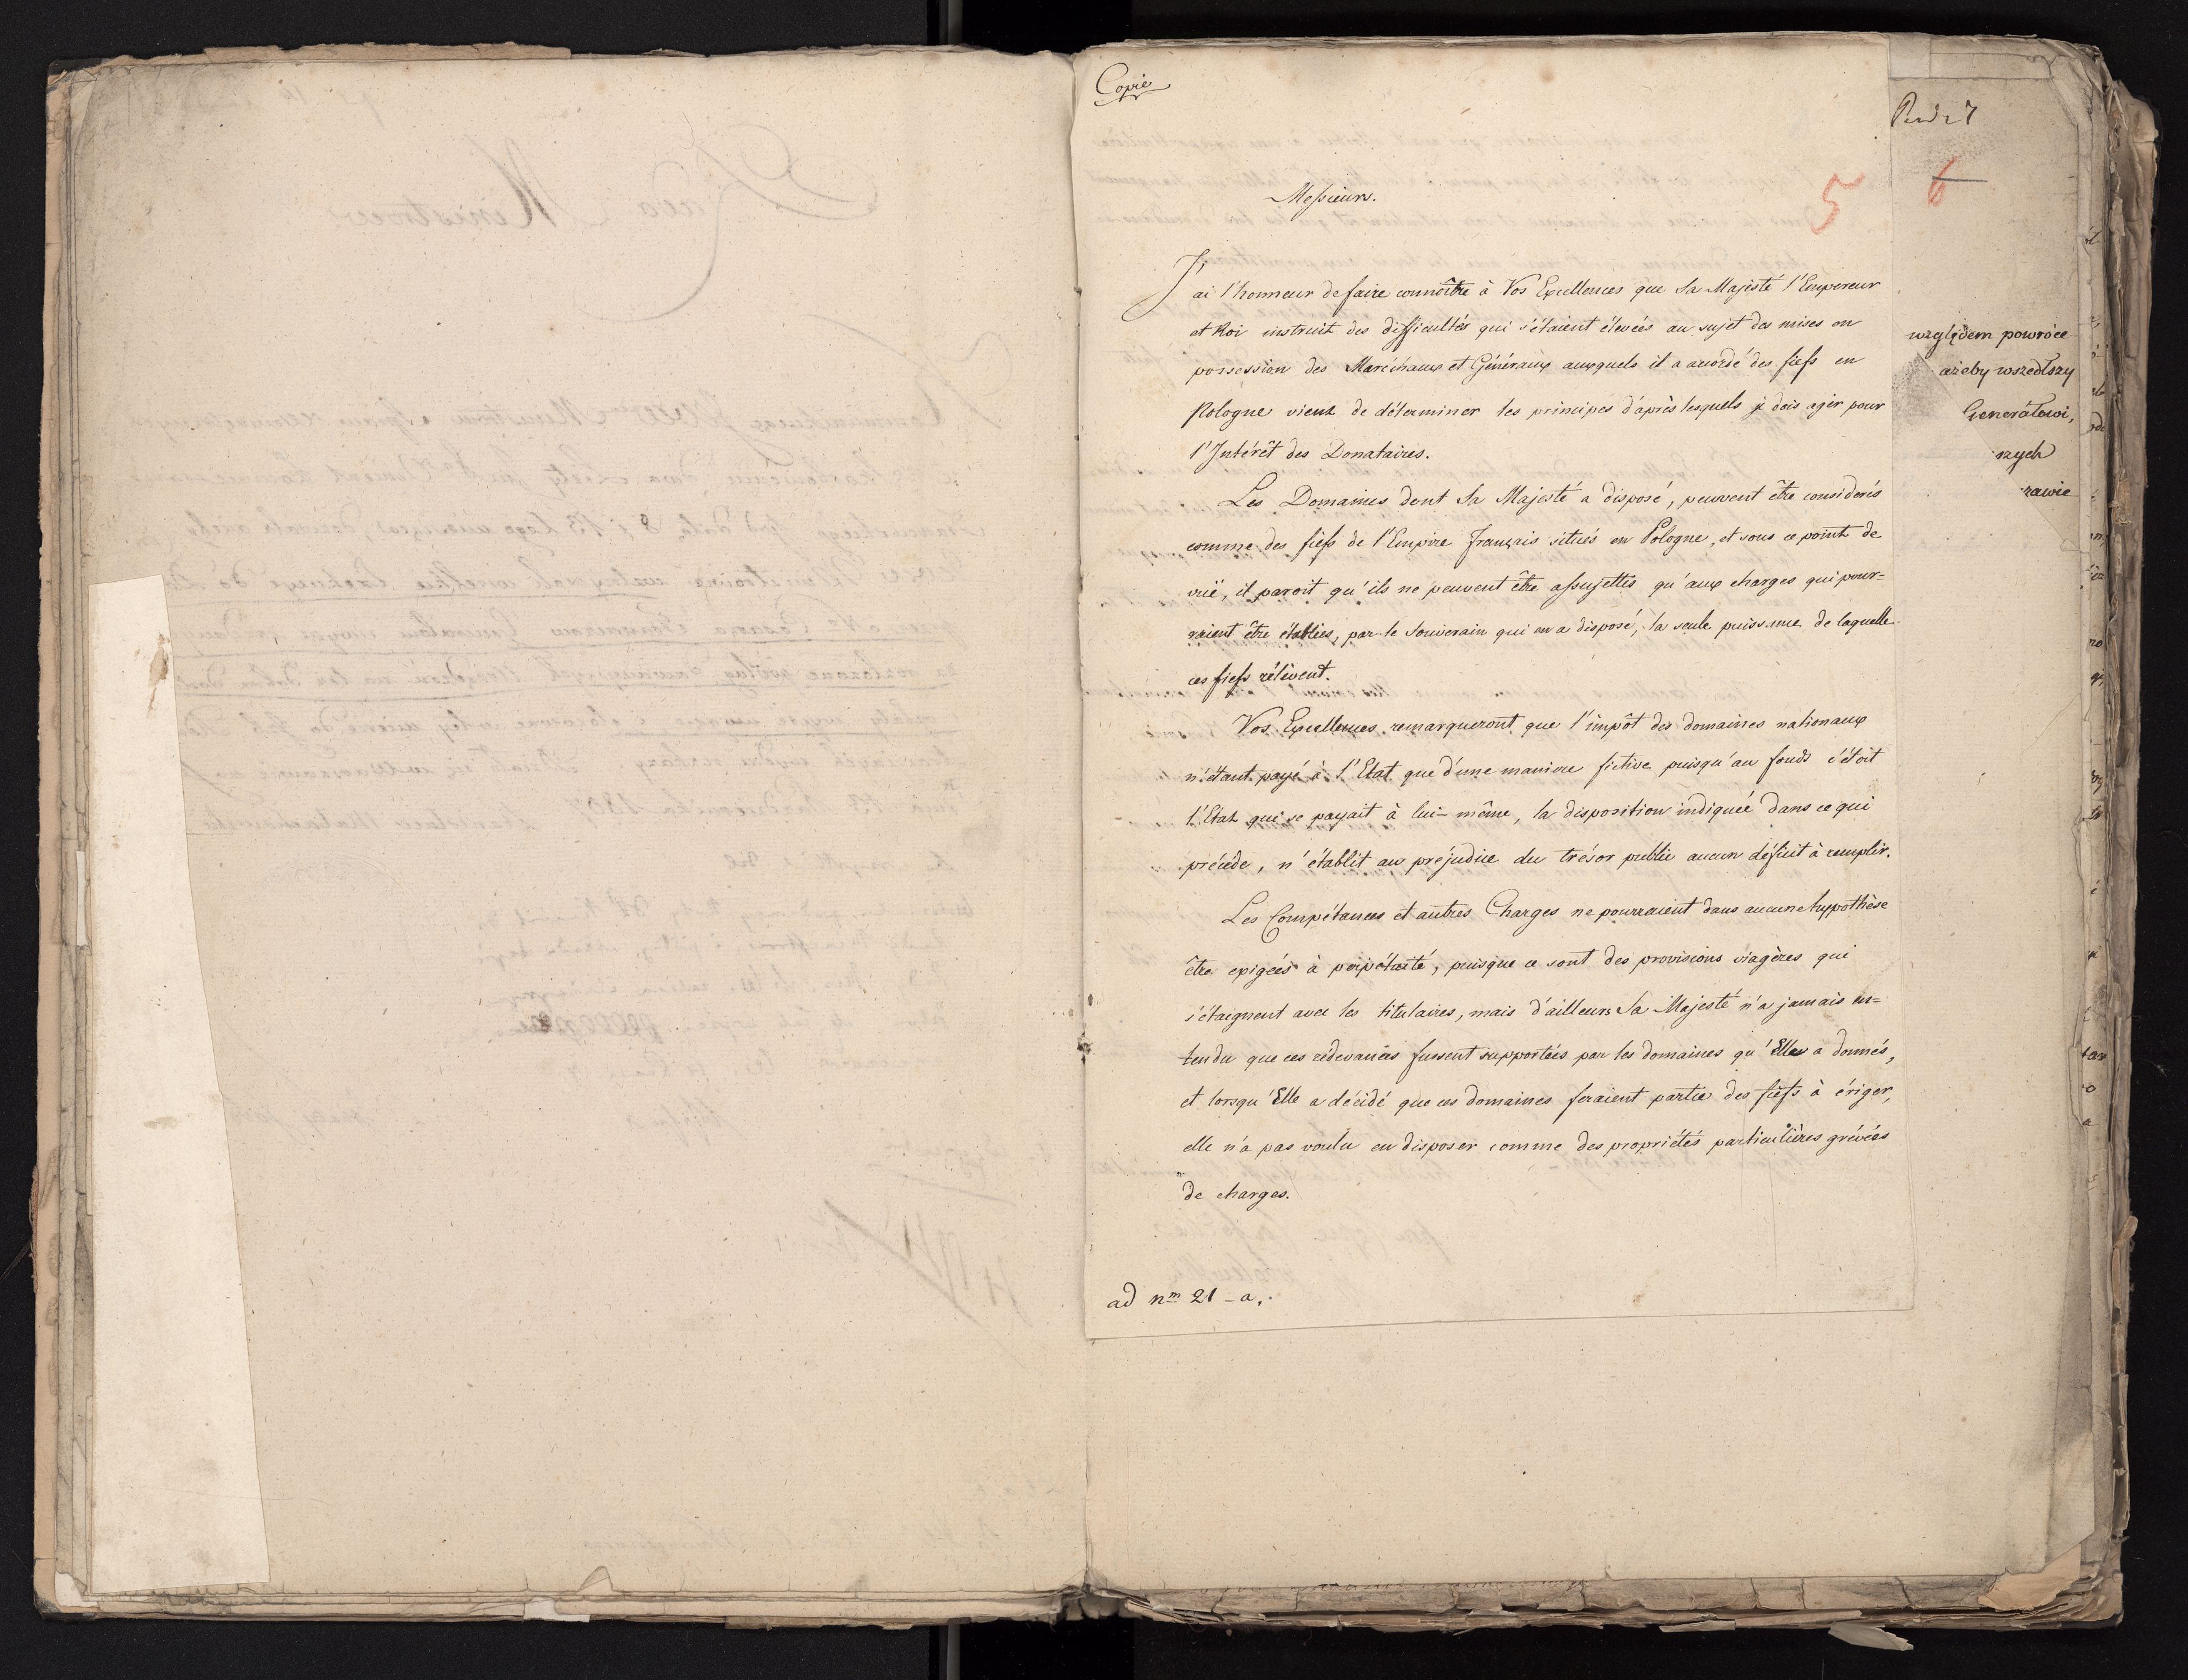 Copie
5
Messieurs.
J'ai l'honneur de faire connoître à Vos Excellences que Sa Majesté l'Empereur
et Roi instruit des difficultés qui s'étaient élevées au sujet des mises en
possession des Maréchaux et Généraux auxquels il a accordé des fiefs en
Pologne vient de déterminer les principes d'après lesquels je dois agir pour
l'Intérêt des Donataires.
Les Domaines dont Sa Majesté a disposé, peuvent être considerés
comme des fiefs de l'Empire français situés en Pologne, et sous ce point de
vuë, il paroit qu'ils ne peuvent être assujettis qu'aux charges qui pour=
raient être établies, par le Souverain qui en a disposé, la seule puissance de laquelle
ces fiefs rélèvent.
Vos Excellences remarqueront que l'impôt des domaines nationaux
n'étant payé à l'Etat que d'une manière fictive puisqu'au fonds c'étoit
l'Etat qui se payait à lui-même, la disposition indiquée dans ce qui
précède, n'établit au préjudice du trésor public aucun déficit à remplir.
Les Compétances et autres Charges ne pourraient dans aucune hypothèse
être exigées à perpétuité, puisque ce sont des provisions viagères qui
s'étaignent avec les titulaires, mais d'ailleurs Sa Majesté n'a jamais en=
tendu que ces rédevances fussent supportées par les domaines qu'Elle a donnés,
et lorsqu'Elle a décidé que ces domaines feraient partie des fiefs à ériger,
elle n'a pas voulu en disposer comme des propriétés particulières grévées
de charges.
ad nm 21 - a.
6
względem powróce
ażeby wszedłszy
Generałowi,
nych
rawie